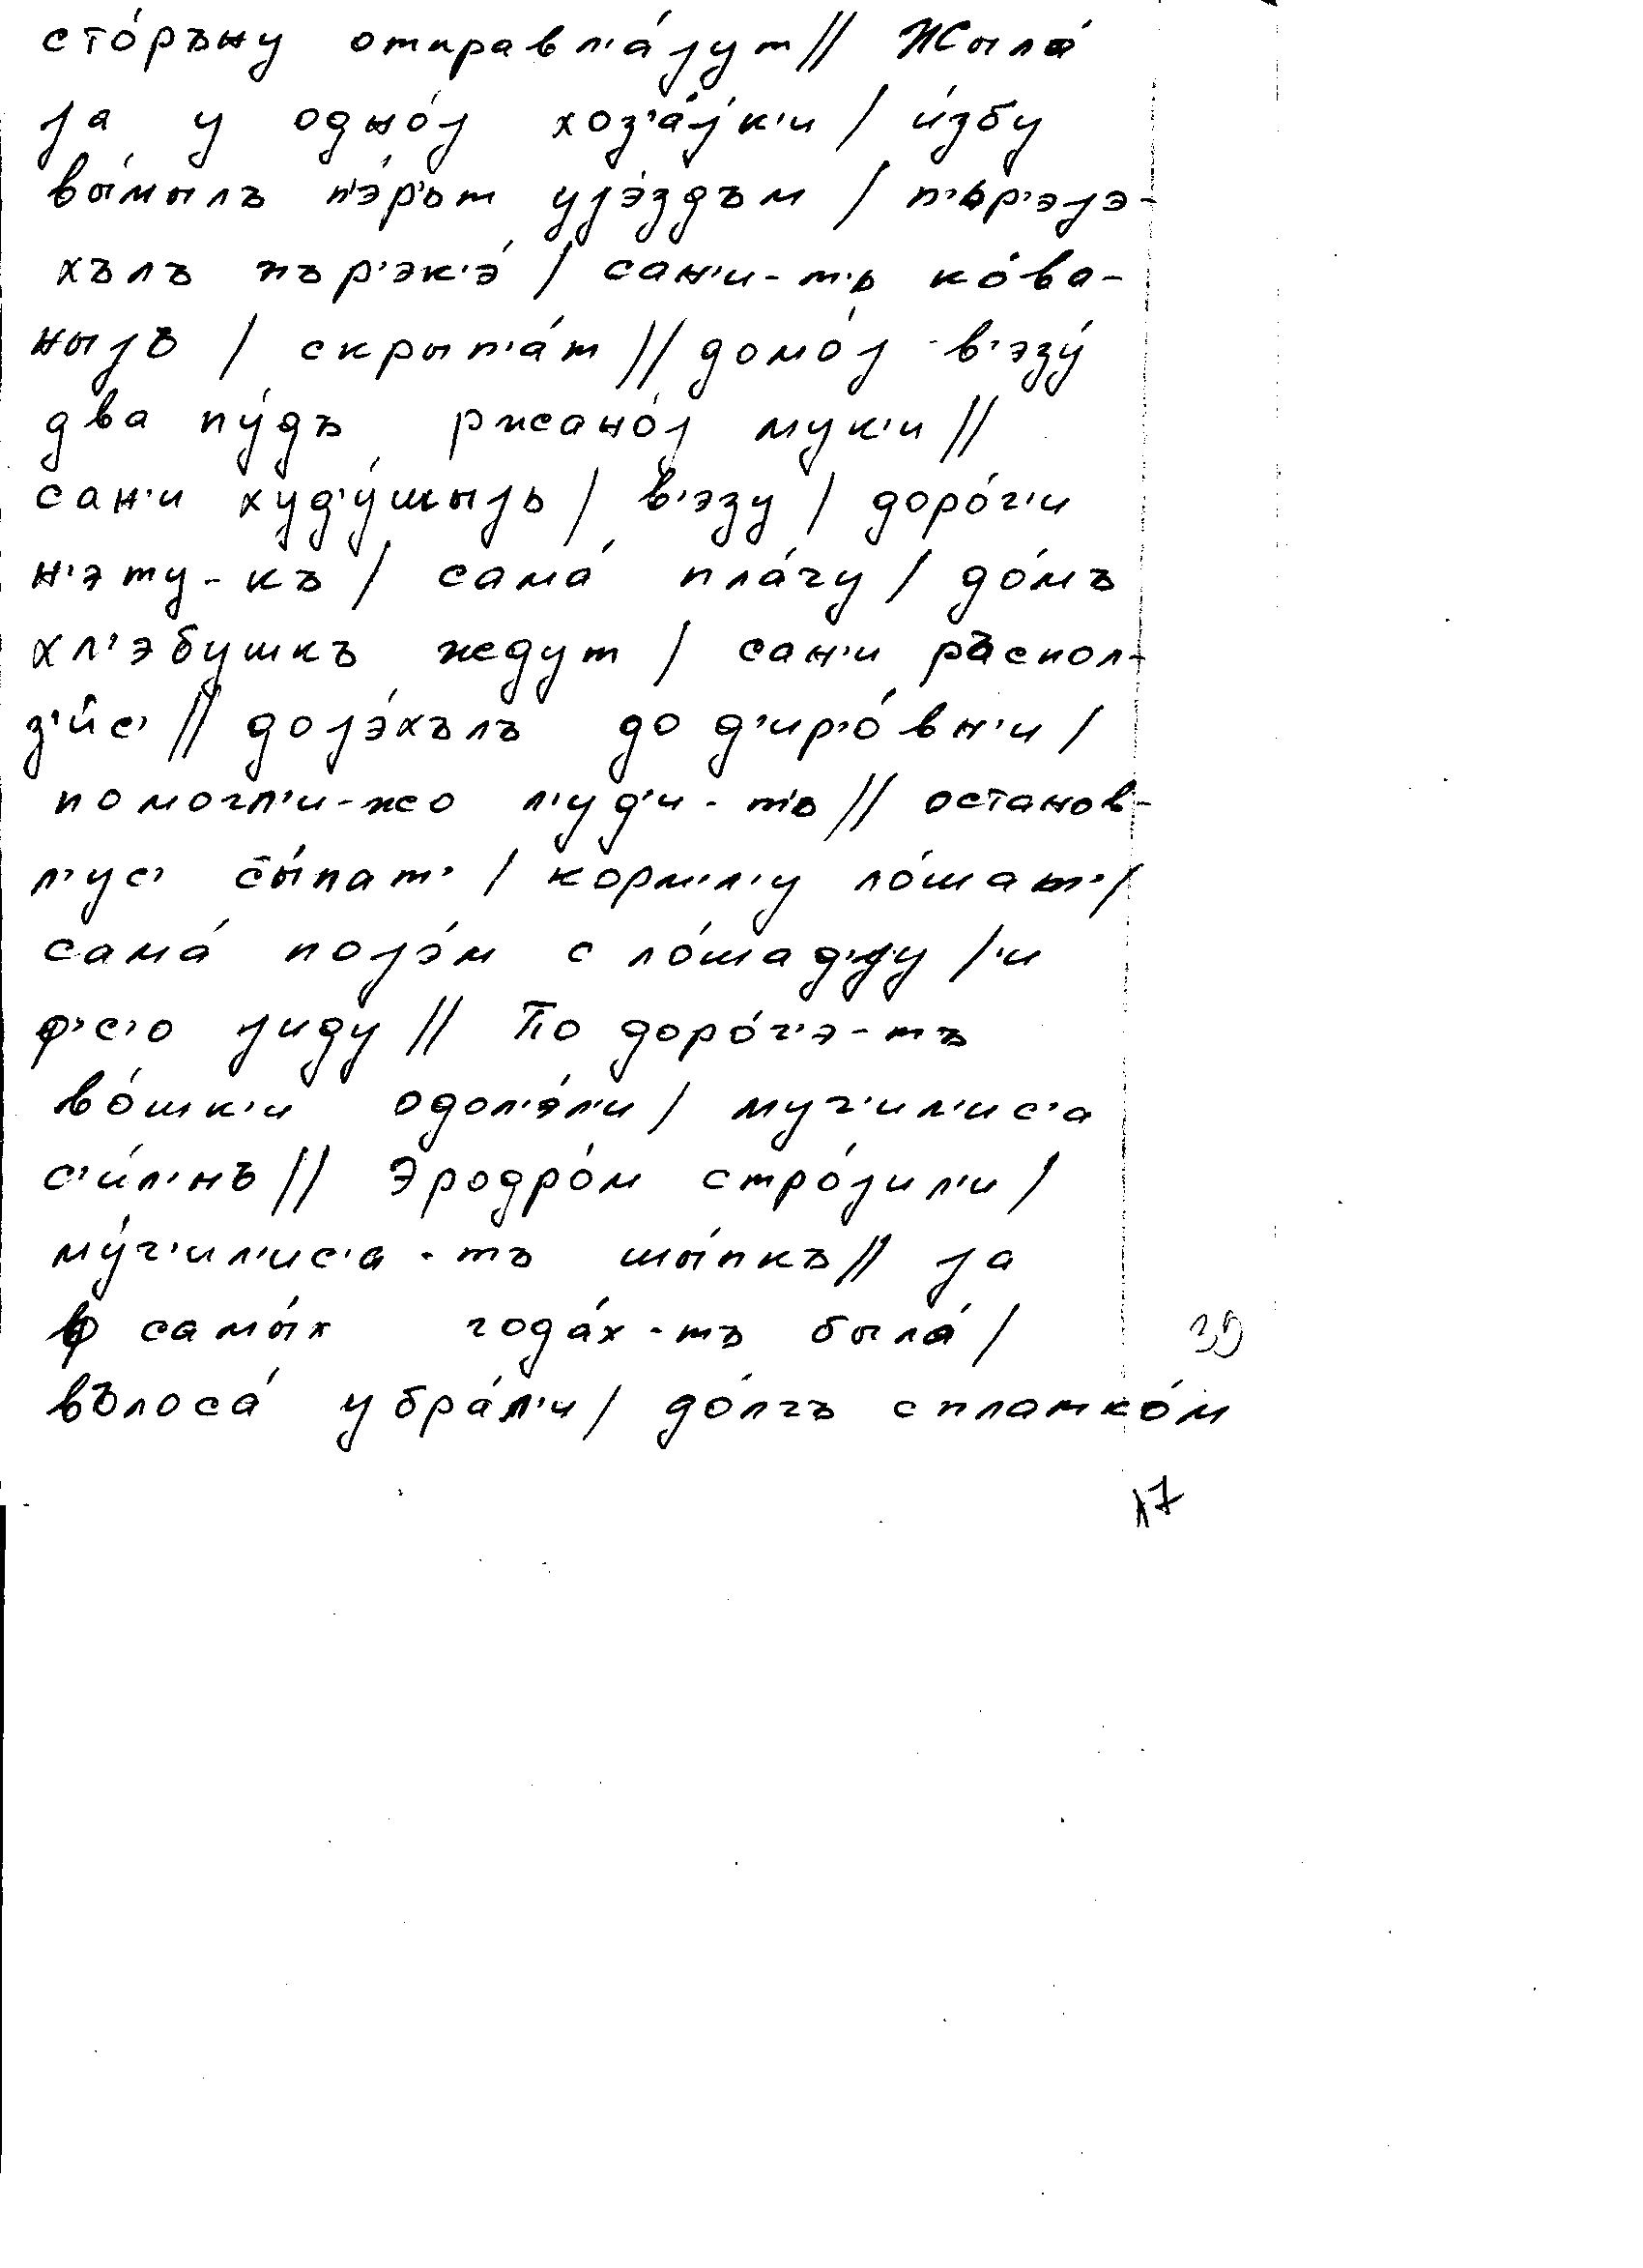 сто́ръну отправл'а́јут // Жыла́
ја у одно́ј хоз'а́јк'и / и́збу
вы́мылъ п'э́р'ьт ујэ́здъм / п'ьр'эјэ-
хълъ пър'эк'э́ / сан'и-т'ь ко́ва-
ныјъ / скрып'а́т // домо́ј в'эзу́
два пу́дъ ржано́ј мук'и //
сан'и худ'у́шыјь / в'эзу / доро́г'и
н'эту-къ / сама́ пла́чу / до́мъ
хл'эбушкъ ждут / сан'и ръспол-
з'и́с' // dојэ́хълъ до д'ир'о́вн'и /
помогл'и-жо л'уд'и-т'ь // останов-
л'ус' сы́пат' / кормл'у ло́шат' /
сама́ појэ́м с ло́шад'ју / и
ф'с'о јиду // По доро́г'э-тъ
во́шк'и одол'э́л'и / муч'ил'ис'а
с'и́л'нъ // Эродро́м стро́јил'и /
му́ч'ил'ис'а-тъ шы́пкъ // ја
ф самы́х года́х-тъ была́ /
вълоса́ убра́л'и / до́лгъ с платко́м
39
17